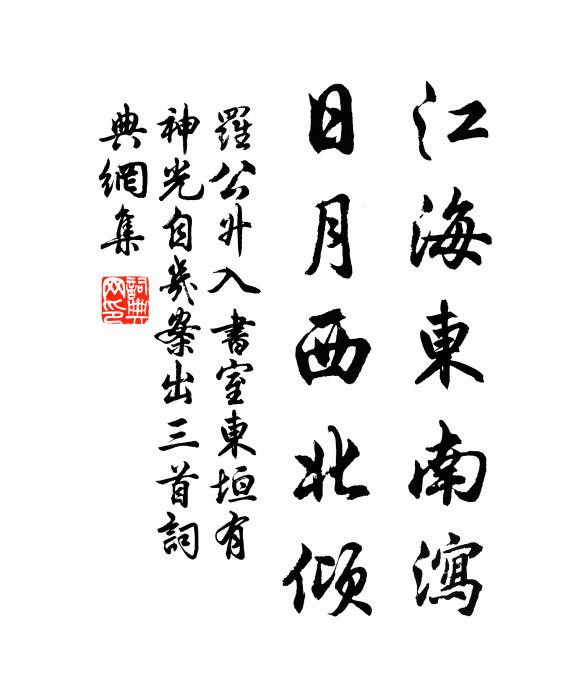 江海東南瀉
日月西北傾
羅公升入書室東垣有
神光自幾案出三首詞
典網集
詞典
网印